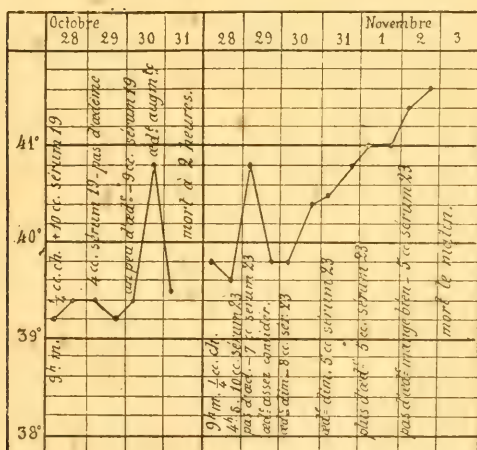 Octobre
Novembre
28 29 30 31 28 29 30 31 1 2 3
41°
40°
39°
38°
9h m. 1/4 cc. ch. + 10 cc. sérum 19
4 cc. sérum 19 - pas d'œdème
un peu d'œd. - 9 cc. sérum 19
œd. augmte
mort à 2 heures.
9h m. 1/4 cc. ch.
4h s. 10 cc. sérum 23
pas d'œd. - 7 cc. sérum 23
œd. assez consider.
œd. dim. - 8 cc. sér. 23
œd. dim. 5 cc. sérum 23
plus d'œd. 5 cc. sérum 23
pas d'œd. mange bien - 5 cc. sérum 23
mort le matin.